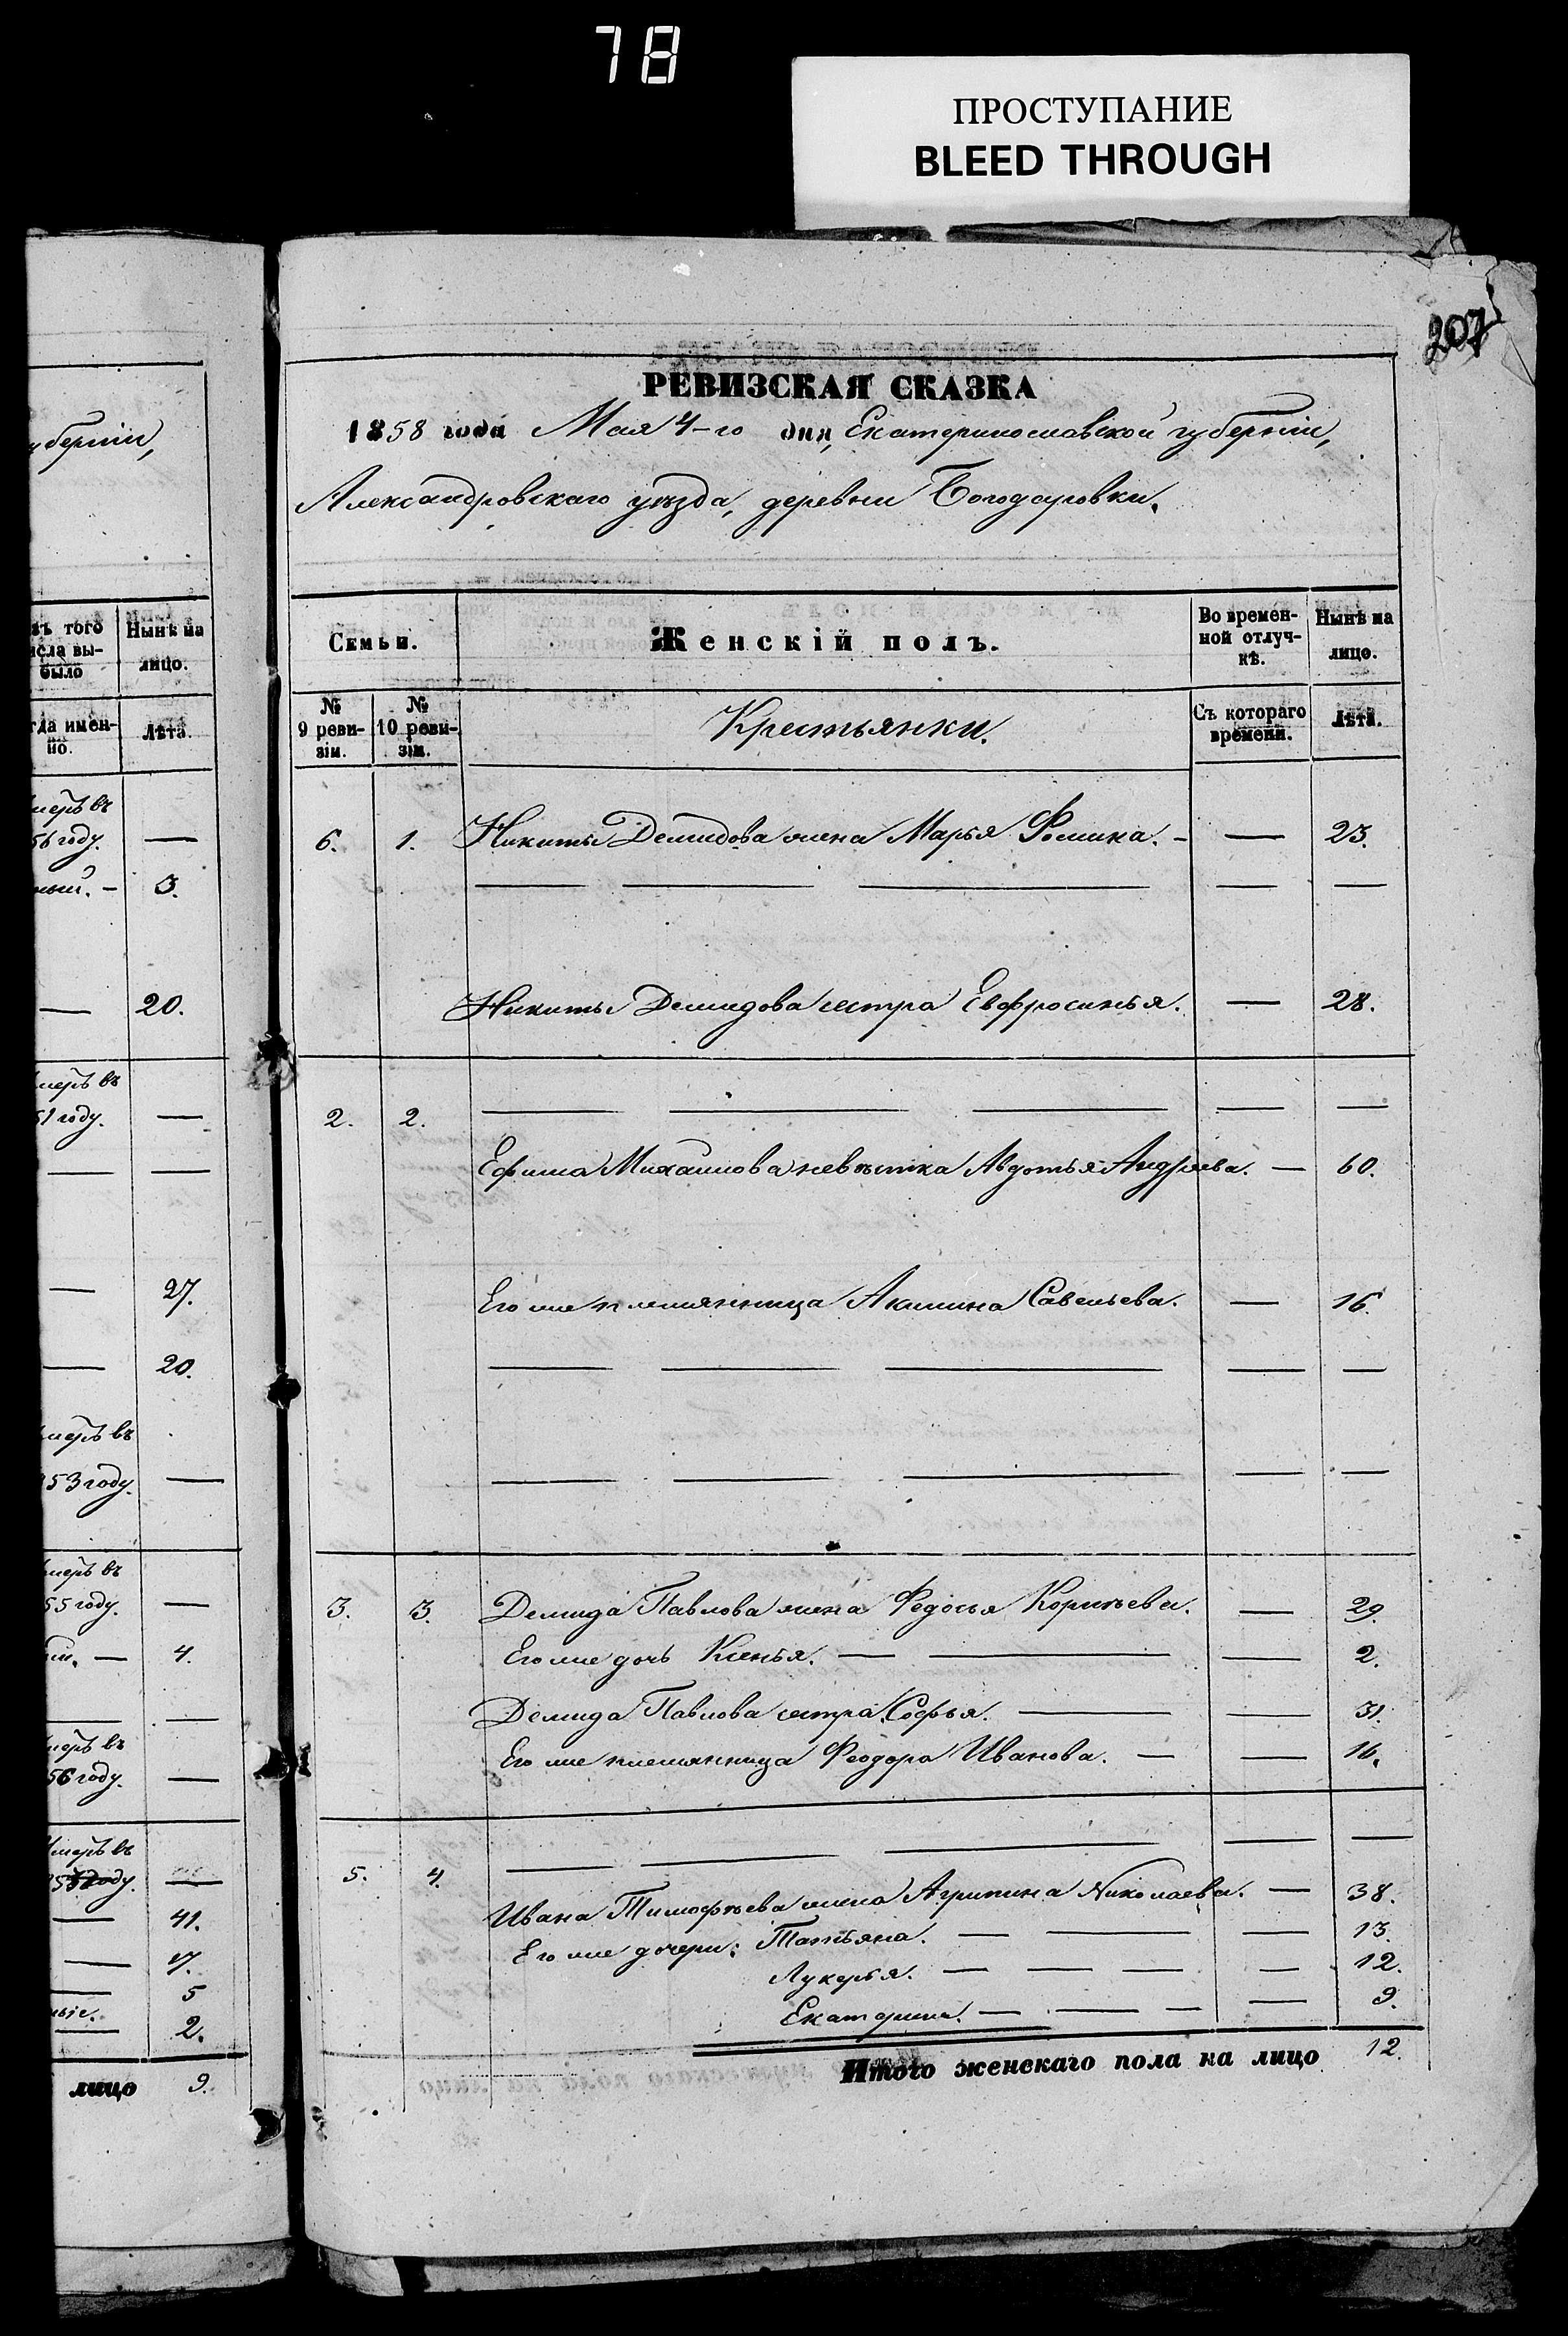 78
ПРОСТУПАНИЕ
BLEED THROUGH
207
уберніи,
РЕВИЗСКАЯ СКАЗКА
1858 года Мая 4-го дня, Екатеринославской губерніи,
Александровскаго уѣзда, деревни Богодаровки.
зъ того
исла вы-
было
Нынѣ на
лицо.
гда имен-
но.
Лѣта.
Семьи.
Женскій полъ.
Во времен-
ной отлуч-
кѣ.
Нынѣ на
лицо.
№
9 реви-
зіи.
№
10 реви-
зіи.
Крестьянки.
Съ котораго
времени.
Лѣта.
меръ въ
56 году. —
ный. — 3.
— 20.
меръ въ
51 году. —
— —
— 27.
— 20.
меръ въ
53 году. —
меръ въ
55 году. —
— 4.
— —
меръ въ
56 году. —
Умеръ въ
году. —
— 41.
— 7.
— 5
ные.
— 2.
лицо 9.
6. 1. Никиты Демидова жена Марья Фомина. — — 23.
— — — — —
Никиты Демидова сестра Евфросинья. — 28.
2. 2. — — — — —
Ефима Михайлова невѣстка Авдотья Андреева. — 60.
Его же племянница Акилина Савельева. — 16.
— — — — —
— — — — —
3. 3. Демида Павлова жена Федосья Корнѣева. — 29.
Его же дочь Ксенья. — — — 2.
Демида Павлова сестра Софья. — — 31.
Его же племянница Феодора Иванова. — — 16.
5. 4. — — — — —
Ивана Тимофѣева жена Агрипина Николаева. — 38.
Его же дочери: Татьяна. — — — 13.
Лукерья. — — — — 12.
Екатерина. — — — — 9.
Итого женскаго пола на лицо 12.